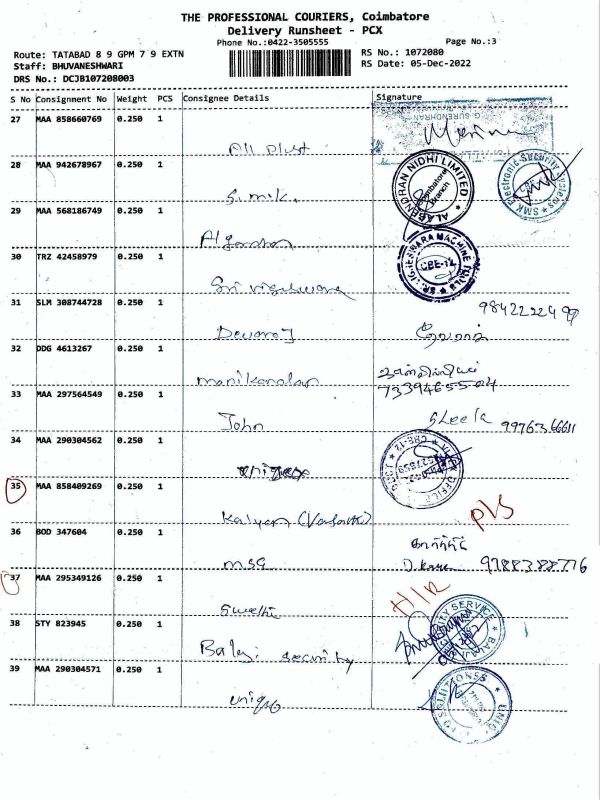 THE PROFESSIONAL COURIERS, Coimbatore
Delivery Runsheet - PCX
Phone No.:0422-3505555
Page No.:3
Route: TATABAD 8 9 GPM 7 9 EXTN
RS No.: 1072080
Staff: BHUVANESHWARI
RS Date: 05-Dec-2022
DRS No.: DCJB107208003
S No Consignment No Weight PCS Consignee Details Signature
27 MAA 858660769 0.250 1
G SURENDHRAN
All Plust
28 MAA 942678967 0.250 1
ALABENDRAN NIDHI LIMITED
Coimbatore Branch
SMK Electronic Security Systems
S.m.k.
29 MAA 568186749 0.250 1
30 TRZ 42458979 0.250 1
MACHINE TOOLS
CBE-12
31 SLM 308744728 0.250 1
Devaraj
தேவராஜ்
32 DDG 4613267 0.250 1
manikandan
7339465504
33 MAA 297564549 0.250 1
John
Sleela 9976366611
34 MAA 290304562 0.250 1
OFFICE
CBE-12
35 MAA 858409269 0.250 1
Kalyan (Vasanth)
P/S
36 BOD 347604 0.250 1
கார்த்திக்
msg
9788388776
37 MAA 295349126 0.250 1
Swethi
38 STY 823945 0.250 1
SECURITY SERVICE
Balaji security
39 MAA 290304571 0.250 1
uniq